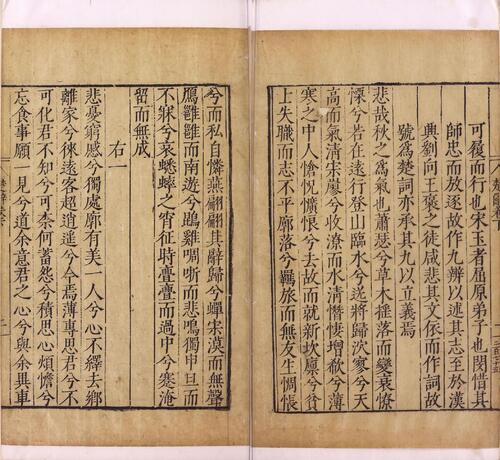 可履而行也宋玉者屈原弟子也閔惜其
師忠而放逐故作九辨以述其志至於漢
興劉向王褒之徒咸悲其文依而作詞故
號爲楚詞亦承其九以立義焉
悲哉秋之爲氣也蕭瑟兮草木搖落而變衰憭
慄兮若在遠行登山臨水兮送將歸泬寥兮天
高而氣清宋廖兮收潦而水清憯悽增欷兮薄
寒之中人愴怳懭悢兮去故而就新坎廩兮貧
士失職而志不平廓落兮羈旅而無友生惆悵
兮而私自憐燕翩翩其辭歸兮蟬宋漠而無聲
鴈雝雝而南遊兮鵾雞啁哳而悲鳴獨申旦而
不寐兮哀蟋蟀之宵征時亹亹而過中兮蹇淹
留而無成
右一
悲憂窮慼兮獨處廓有美一人兮心不繹去鄉
離家兮徠遠客超逍遥兮今焉薄專思君兮不
可化君不知兮可柰何蓄怨兮積思心煩憺兮
忘食事願一見兮道余意君之心兮與余異車